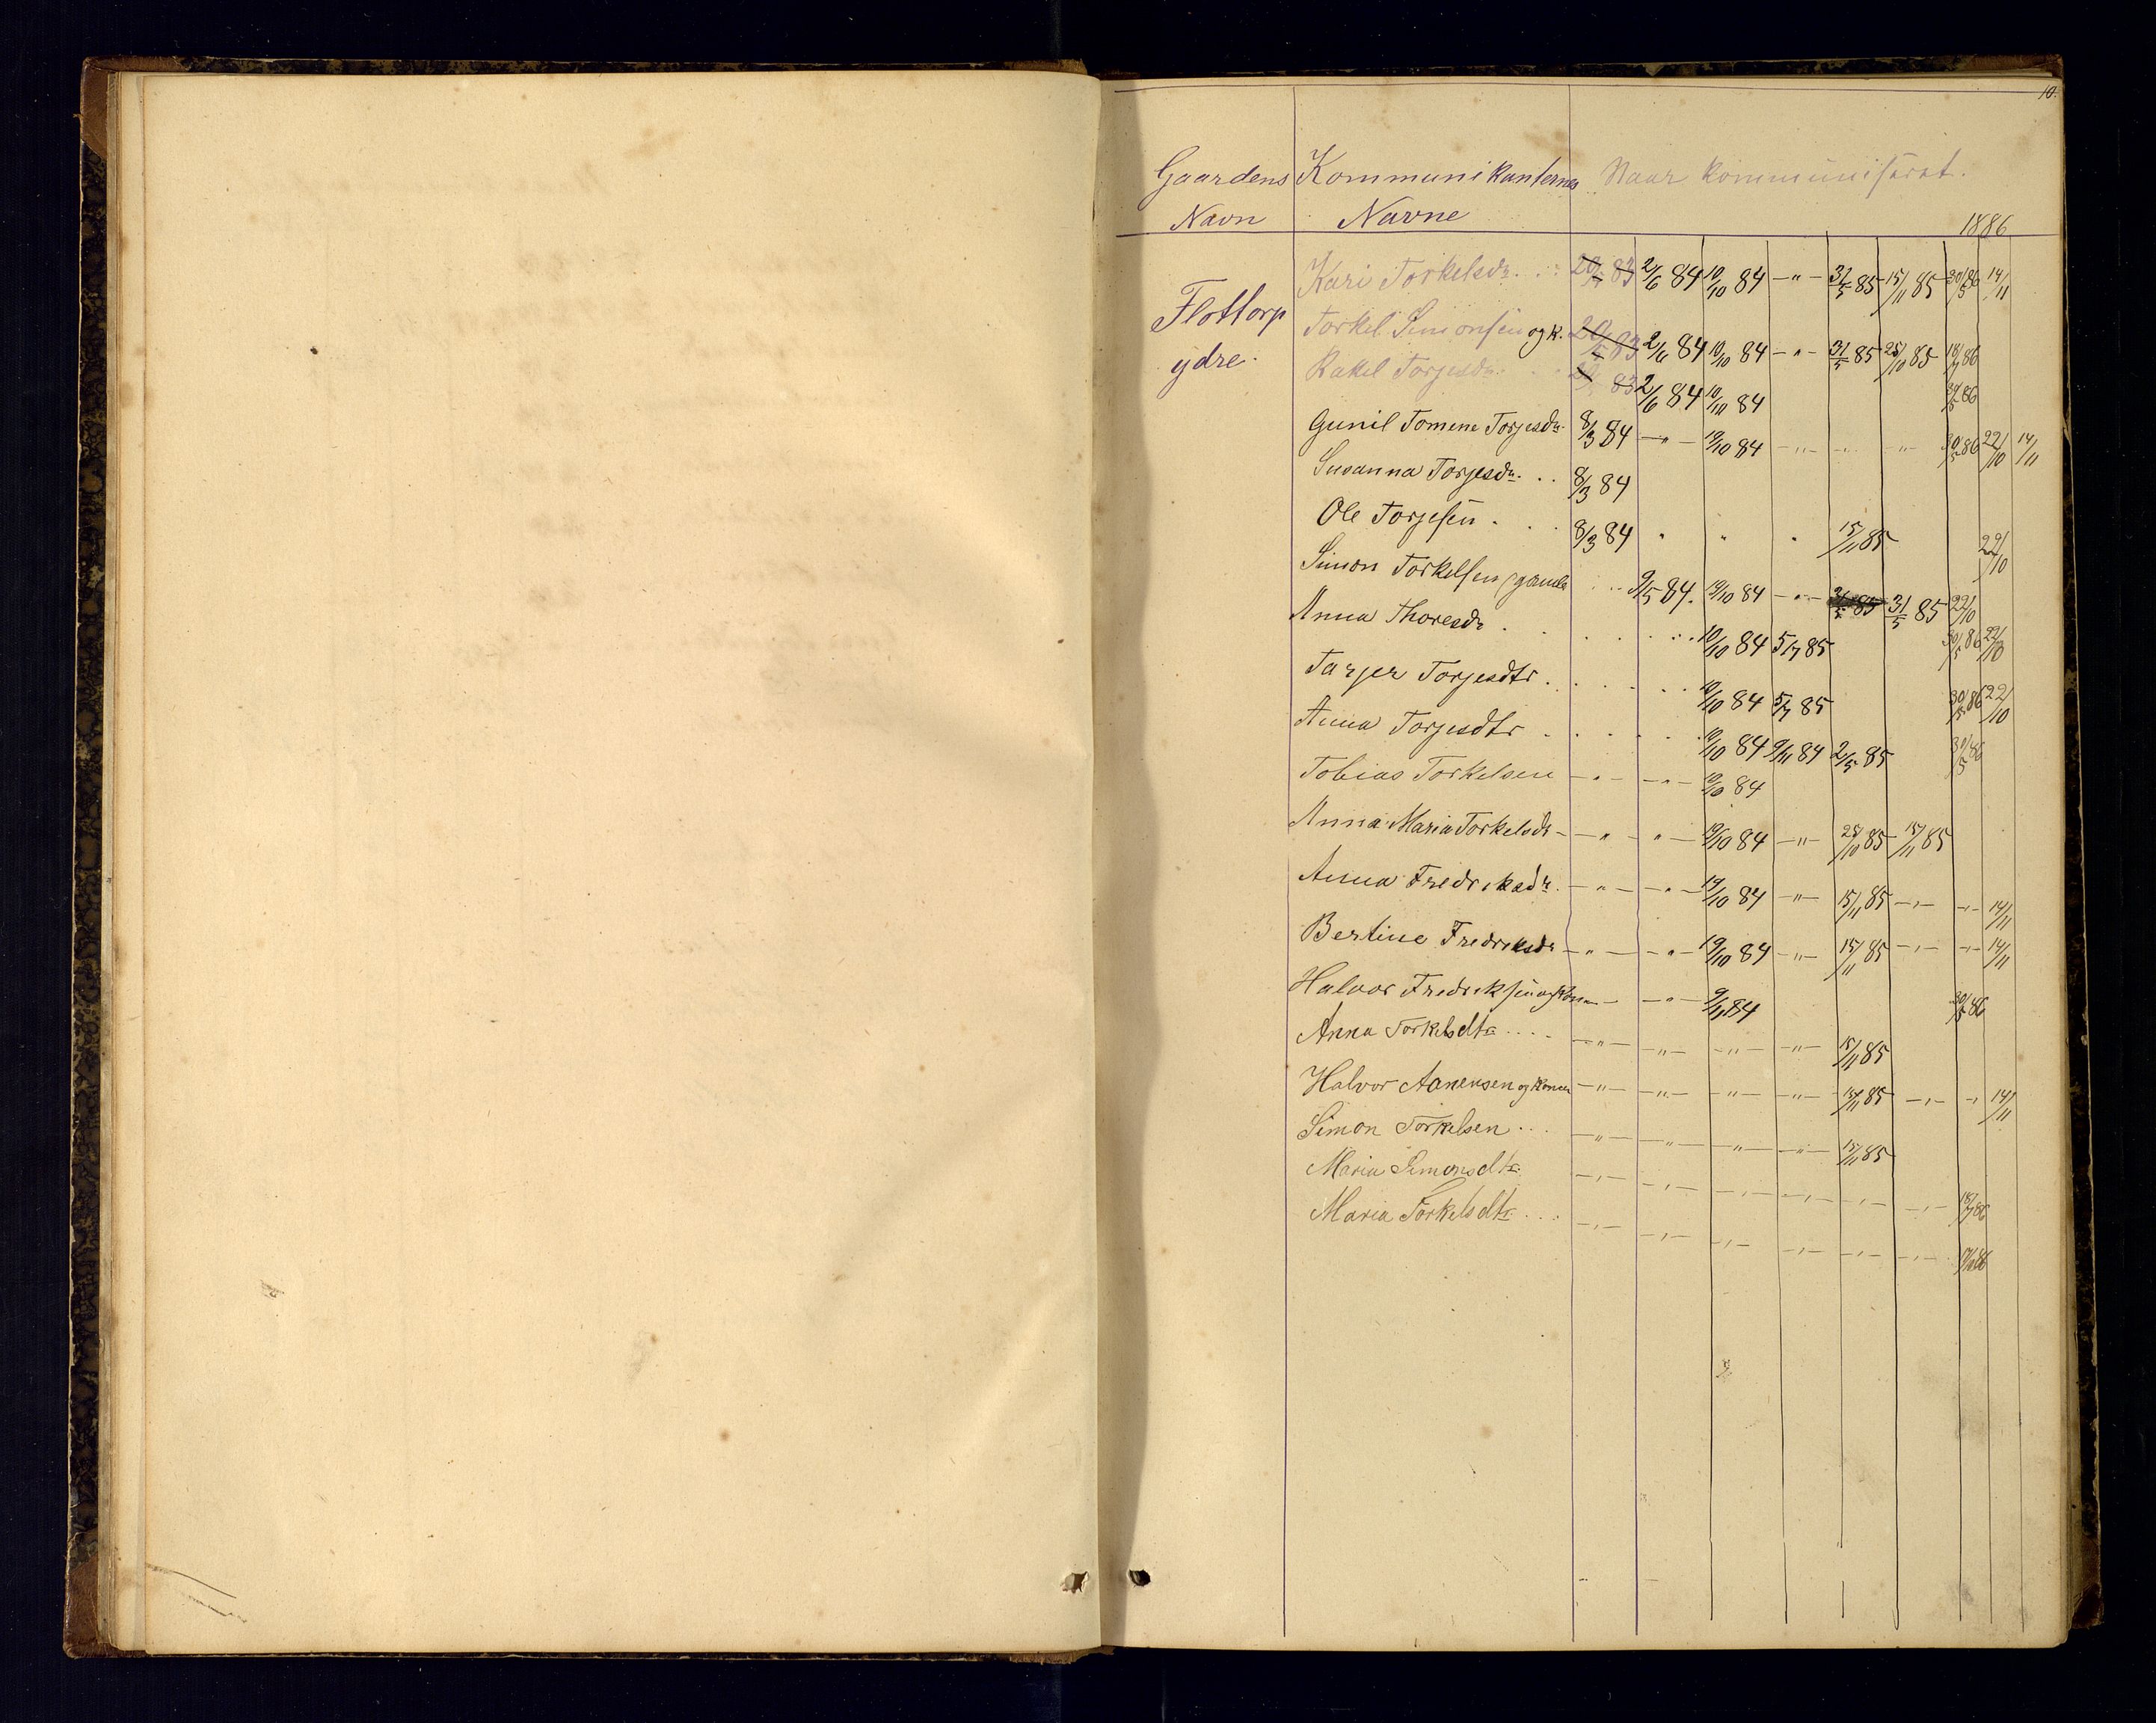 10.
Gaardens Kommunikanternes Naar kommuniserat.
Navn Navne 1886
Flottorp
ydre.
Kari Torkelsdr. . : 20/5 83 2/6 84 10/10 84 - " - 31/5 85 15/11 85 30/5 86 14/11
Torkel Simonsen og k. 20/5 83 2/6 84 10/10 84 - " - 31/5 85 25/10 85 18/7 86
Rakel Torjesdr. . . 20/5 83 2/6 84 10/10 84 30/5 86
Gunil Tomene Torjesdr. 8/3 84 - " - 19/10 84 - " - - " - - " - 30/5 86 22/10 14/11
Susanna Torjesdr. . . 8/3 84
Ole Torjesen . . . 8/3 84 " " " 15/11 85 22/10
Simon Torkelsen gamle . . 9/5 84. 19/10 84 - " - 31/5 85 31/5 85 22/10
Anna Thoresdr . . . . . 10/10 84 5/7 85 30/5 86 22/10
Tarjer Torjesdtr . . . . . 10/10 84 5/7 85 30/5 86 22/10
Anna Torjesdtr . . . . . 10/10 84 9/11 84 2/5 85 30/5 86
Tobias Torkelsen - " - - " - 19/10 84
Anna Maria Torkelsdr - - " - " - 19/10 84 - " - 25/10 85 15/11 85
Anna Fredriksdr. - " - - " - 19/10 84 - " - 15/11 85 - " - - " - 14/11
Bertine Fredriksdr - " - - " - 19/10 84 - " - 15/11 85 - " - - " - 14/11
Halvor Fredriksen og kone - - " - 9/11 84 30/5 86
Anna Torkelsdtr . . . . - " - - " - - " - - " - 15/11 85
Halvor Aanensen og konen - " - - " - - " - - " - 15/11 85 - " - - " 14/11
Simon Torkelsen . . . - " - - " - - " - - " - 15/11 85
Maria Simonsdtr. - " - - " - - " - - " - - " - - " - 18/7 86
Maria Torkelsdtr . . . - " - - " - - " - - " - - " - - " -